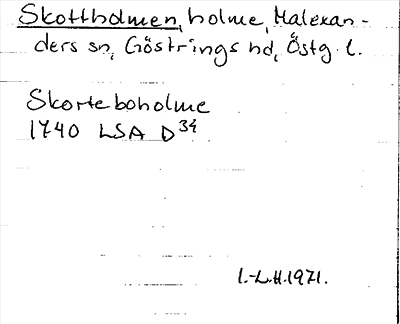 Skottholmen, holme, Malexan-
ders sn, Göstrings hd, Östg. l.
Skorteboholme
1740 LSA D34
I.-L.H.1971.